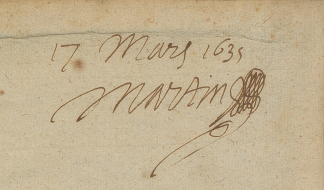 17 Mars 1635
Martin